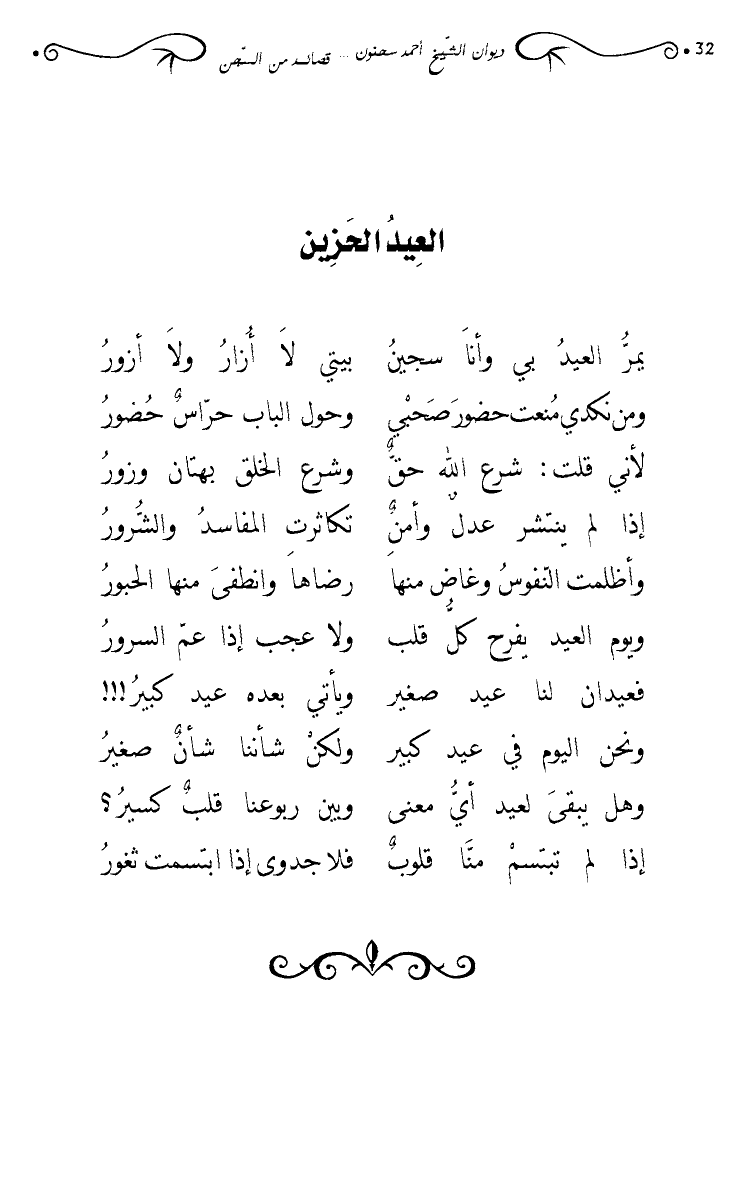 32 ديوان الشّيخ أحمد سحنون ... قصائد من السّجن
العِيدُ الحَزِين
يمرُّ العيدُ بي وأناَ سجينُ بيتي لاَ أُزارُ ولاَ أزورُ
ومن نكدي مُنعت حضورَ صَحَبْي وحول الباب حرّاسٌ حُضورُ
لأني قلت: شرع الله حقٌّ وشرع الخلق بهتان وزورُ
إذا لم ينتشر عدلٌ وأمنٌ تكاثرت المفاسدُ والشُّرورُ
وأظلمت النّفوسُ وغاض منهاَ رضاهاَ وانطفىَ منها الحبورُ
ويوم العيد يفرح كلُّ قلب ولا عجب إذا عمّ السرورُ
فعيدان لنا عيد صغير ويأتي بعده عيد كبيرُ!!!
ونحن اليوم في عيد كبير ولكنْ شأننا شأنٌ صغيرُ
وهل يبقىَ لعيد أيُّ معنى وبين ربوعنا قلبٌ كسيرُ؟
إذا لم تبتسمْ منَّا قلوبٌ فلا جدوى إذا ابتسمت ثغورُ